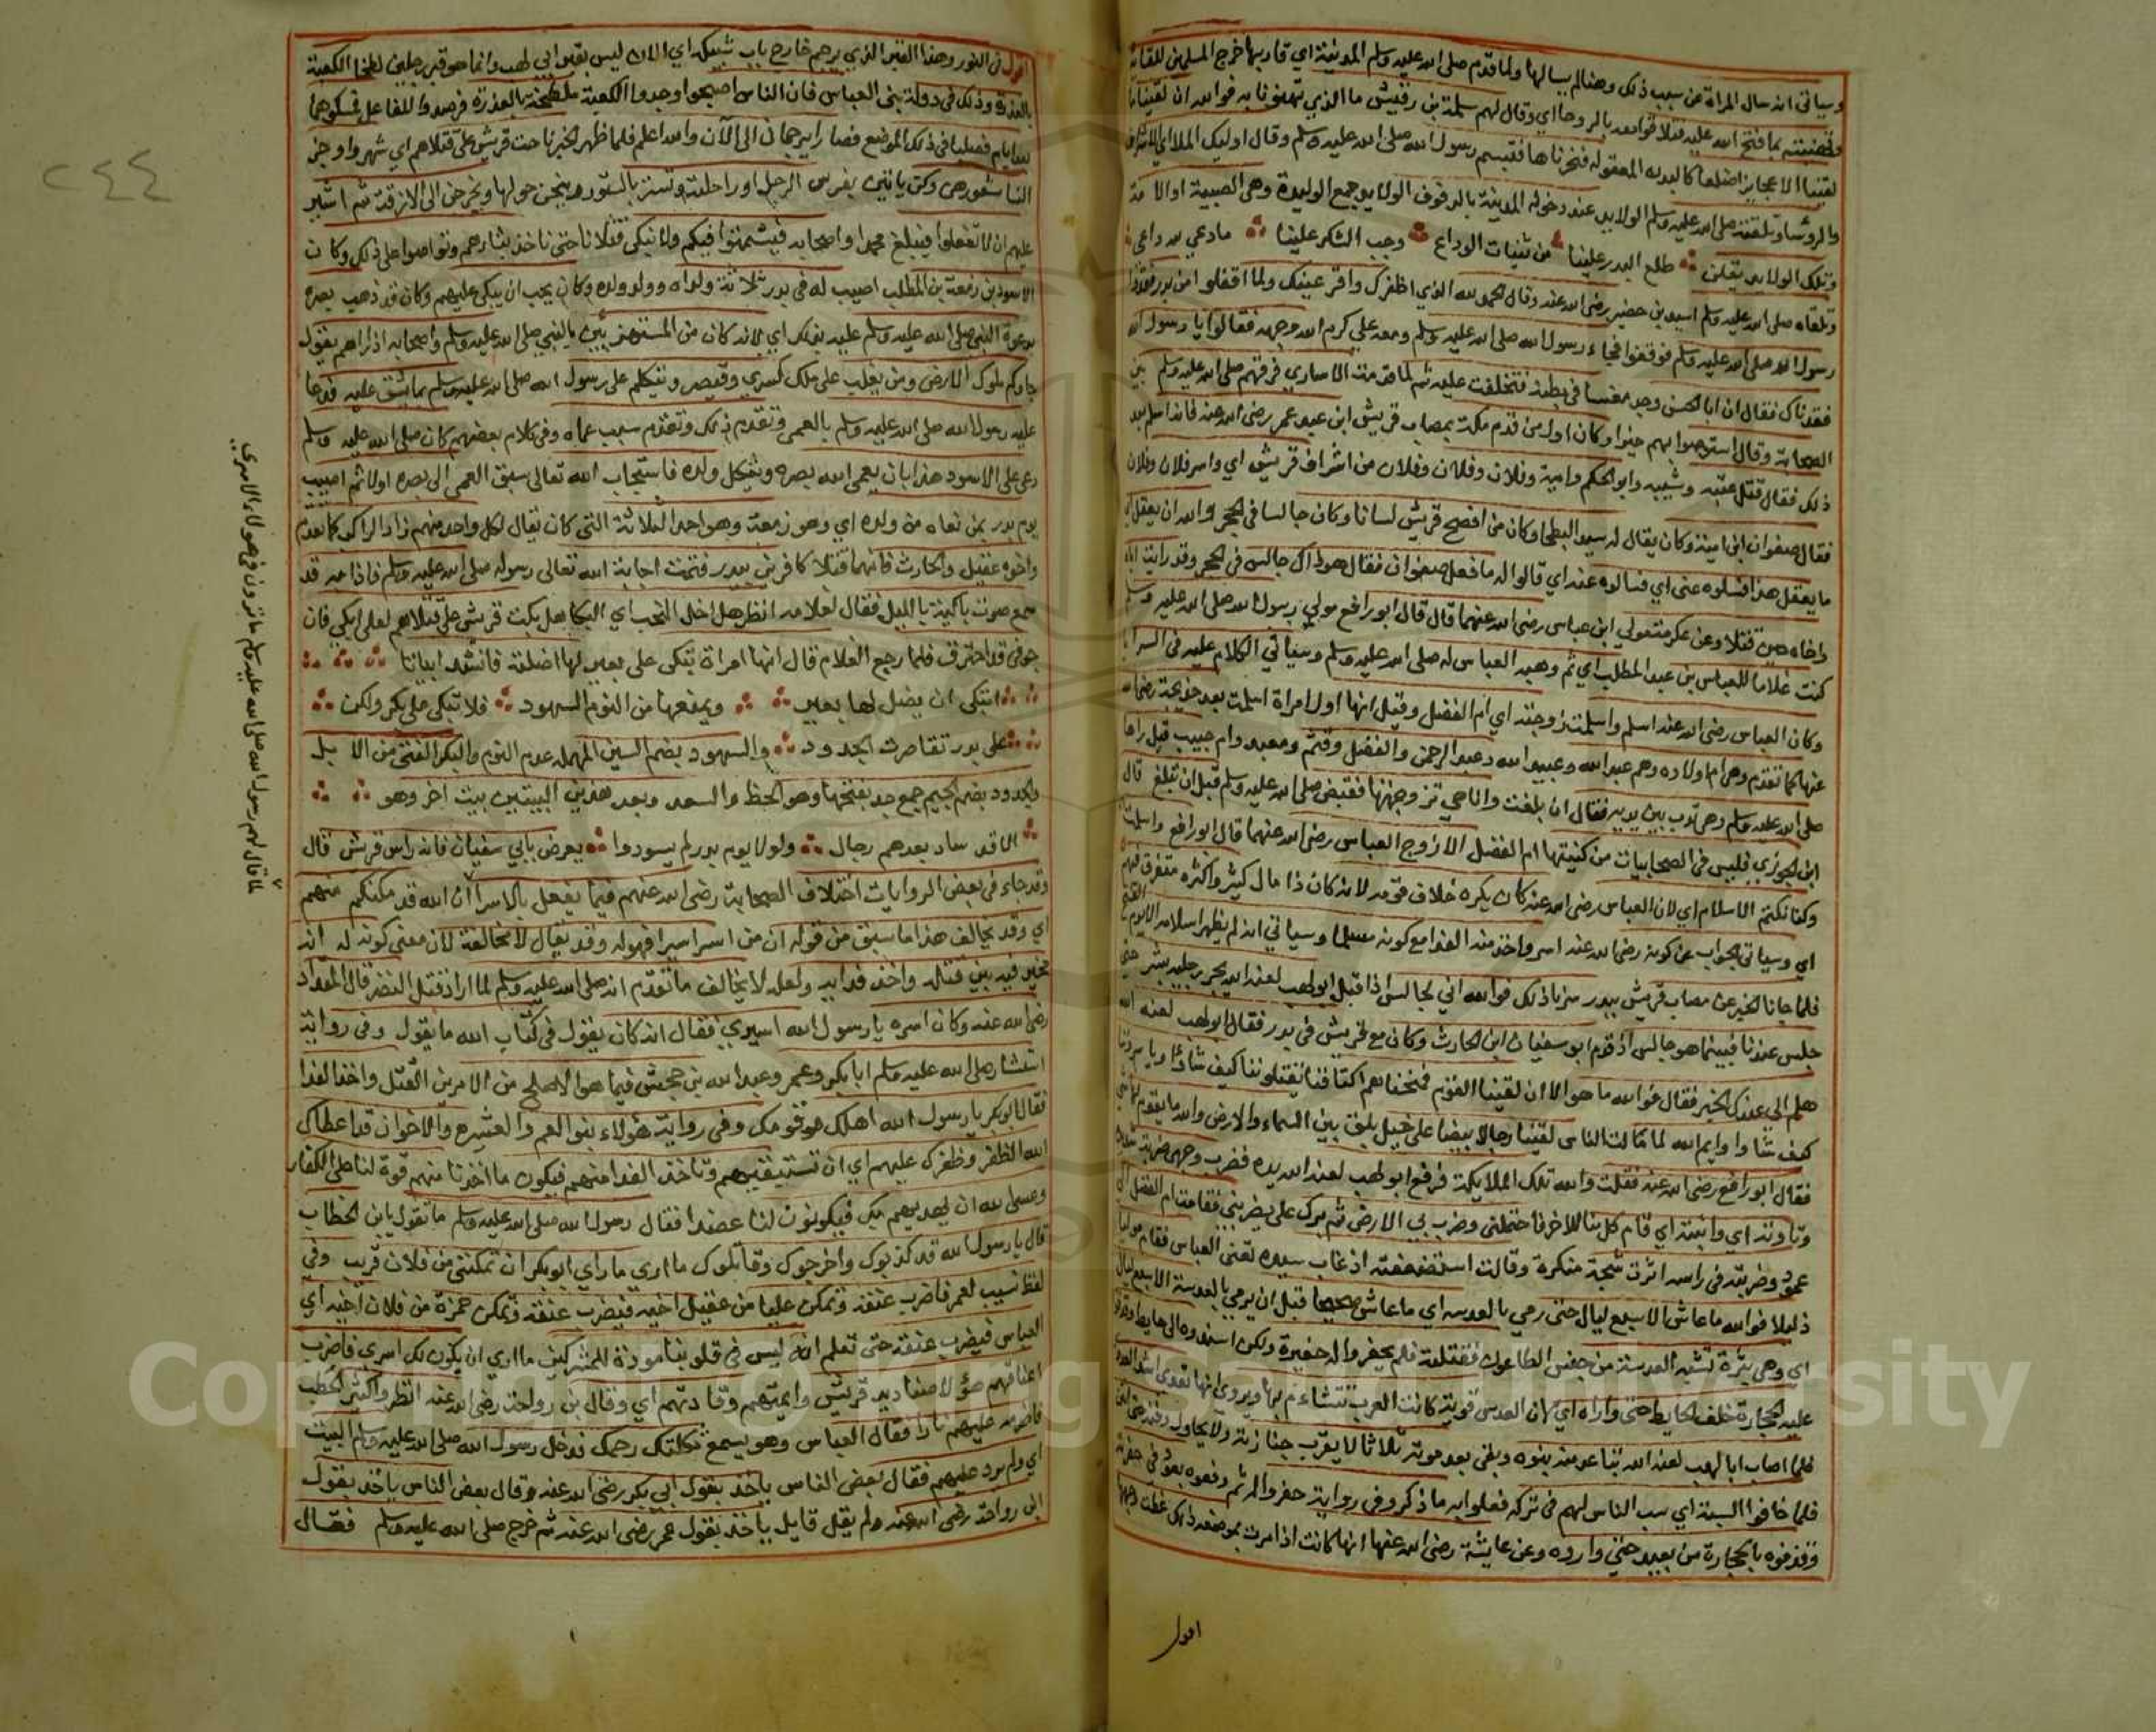 وسياتي انه سال المراة عن سبب ذلك وهنا لم يسالها ولما قدم صلى الله عليه وسلم المدينة اي قاربها خرج المسلمون للقائه
وتهنيته بما فتح الله عليه فتلاقوا معه بالروحا اي وقال لهم سلمة بن وقيش ما الذي تهنونا به فوالله ان لقينا
لقينا الا عجايز اضلعا كالبدن المعقوله فنحرناها فتبسم رسول الله صلى الله عليه وسلم وقال اوليك الملا اي الاشراف
والروسا وتلقته صلى الله عليه وسلم الولايد عند دخوله المدينة بالدفوف الولايد جمع الوليدة وهي الصبية او الامة
وتلك الولايد يقلن طلع البدر علينا من ثنيات الوداع وجب الشكر علينا ما دعي لله داعي
وتلقاه صلى الله عليه وسلم اسيد بن حضير رضي الله عنه وقال الحمد لله الذي اظفرك واقر عينك ولما اقفلوا من بدر فقدوا
رسول الله صلى الله عليه وسلم فوقفوا فجاء رسول الله صلى الله عليه وسلم ومعه علي كرم الله وجهه فقالوا يا رسول الله
فقدناك فقال ان ابا الحسن وجد مغصا في بطنه فتخلفت عليه ثم لما قدمت الاساري فرقهم صلى الله عليه وسلم بين
الصحابة وقال استوصوا بهم خيرا وكان اول من قدم مكة بمصاب قريش ابن عبد عمر رضي الله عنه فانه اسلم بعد
ذلك فقال قتل عتبه وشيبه وابو الحكم وامية وفلان وفلان وفلان من اشراف قريش اي واسر فلان وفلان
فقال صفوان ابن امية وكان يقال له سيد البطحا وكان من افصح قريش لسانا وكان جالسا في الحجر والله ان يعقل
ما يعقل هذا فسلوه عني اي فسالوه عنه اي قالوا له ما فعل صفوان فقال هو ذاك جالس في الحجر وقد رايت اباه
واخاه حين قتلا وعن عكرمة مولي ابن عباس رضي الله عنهما قال قال ابو رافع مولي رسول الله صلى الله عليه وسلم
كنت غلاما للعباس بن عبد المطلب اي ثم وهبه العباس له صلى الله عليه وسلم وسياتي الكلام عليه في السرايا
وكان العباس رضي الله عنه اسلم واسلمت زوجته اي ام الفضل وقيل انها اول امراة اسلمت بعد خديجة رضي الله
عنها كما تقدم وهي ام اولاده وهم عبد الله وعبيد الله وعبد الرحمن والفضل وقثم ومعبد وام حبيب قيل راها
صلى الله عليه وسلم وهي تدب بين يديه فقال ان بلغت وانا حي تزوجتها فقبض صلى الله عليه وسلم قبل ان تبلغ قال
ابن الجوزي فليس في الصحابيات من كنيتها ام الفضل الا زوج العباس رضي الله عنهما قال ابو رافع واسلمت
وكنا نكتم الاسلام اي لان العباس رضي الله عنه كان يكره خلاف قومه لانه كان ذا مال كثير واكثره متفرق فيهم
اي وسياتي الجواب عن كونه رضي الله عنه اسر واخذ منه الفدا مع كونه مسلما وسياتي انه لم يظهر اسلامه الا يوم الفتح
فلما جانا الخبر عن مصاب قريش ببدر سرنا ذلك فوالله اني لجالس اذا قبل ابو لهب لعنه الله يجر رجليه بشر حتى
جلس عندنا فبينما هو جالس اذ قدم ابو سفيان ابن الحارث وكان مع قريش في بدر فقال ابو لهب لعنه الله
هلم الي عندك الخبر فقال فوالله ما هو الا ان لقينا القوم فمنحناهم اكتافنا يقتلوننا كيف شاؤا وياسرونا
كيف شاوا وايم الله لما قالت الناس لقينا رجالا بيضا على خيل بلق بين السماء والارض والله ما يقوم لها شي
فقال ابو رافع رضي الله عنه فقلت والله تلك الملايكة فرفع ابو لهب لعنه الله يده فضرب وجهي ضربة شديدة
وثاورته اي واثبته اي قام كل منا للاخر فاحتملني وضرب بي الارض ثم برك علي يضربني فقامت ام الفضل الي
عمود وضربته في راسه اثرت شجة منكرة وقالت استضعفته اذ غاب سيده تعني العباس فقام موليا
ذليلا فوالله ما عاش الا سبع ليال حتى رمي بالعدسه اي ما عاش صحيحا قبل ان يرمي بالعدسة الا سبع ليال
اي وهي بثرة تشبه العدسة من جنس الطاعون فقتلته فلم يحفروا له حفيرة ولكن اسندوه الى حايط وقذفوا
عليه الحجارة خلف الحايط حتى واراه اي لان العدس قرحة كانت العرب تتشاءم بها ويرون انها تعدي اشد العدوي
فلما اصاب ابا لهب لعنه الله تباعد عنه بنوه وبقي بعد موته ثلاثا لا يقرب جنازته ولا يحاول دفنه حتى انتن
فلما خافوا السبة اي سب الناس لهم في تركه فعلوا به ما ذكر وفي رواية حفروا له ثم دفعوه بعود في حفرته
وقذفوه بالحجارة من بعيد حتى واروه وعن عايشة رضي الله عنها انها كانت اذا مرت بموضعه ذلك غطت وجهها
اقول
اقول في النور وهذا القبر الذي يرجم خارج باب شبيكة اي الان ليس بقبر ابي لهب وانما هو قبر رجلين لطخا الكعبة
بالعذرة وذلك في دولة بني العباس فان الناس اصبحوا وجدوا الكعبة ملطخة بالعذرة فرصدوا للفاعل فمسكوهما
بعد ايام فصلبا في ذلك الموضع فصارا يرجمان الى الآن والله اعلم فلما ظهر الخبر ناحت قريش على قتلاهم اي شهرا وجز
النسا شعورهن وكن ياتين بفرس الرجل او راحلته وتستر بالستور وينحن حولها ويخرجن الى الازقة ثم اشير
عليهم ان لا تفعلوا فيبلغ محمدا واصحابه فيشمتوا فيكم ولا نبكي قتلانا حتى ناخذ بثارهم وتواصوا على ذلك وكان
الاسود بن زمعة بن المطلب اصيب له في بدر ثلاثة ولداه وولد ولده وكان يحب ان يبكي عليهم وكان قد ذهب بصره
بدعوة النبي صلى الله عليه وسلم عليه بذلك اي لانه كان من المستهزئين بالنبي صلى الله عليه وسلم واصحابه اذا راهم يقول
جاوكم ملوك الارض ومن يغلب على ملك كسري وقيصر ويتكلم على رسول الله صلى الله عليه وسلم بما يشق عليه فدعا
عليه رسول الله صلى الله عليه وسلم بالعمى وتقدم ذلك وتقدم سبب عماه وفي كلام بعضهم كان صلى الله عليه وسلم
دعى على الاسود هذا بان يعمى الله بصره ويثكل ولده فاستجاب الله تعالى سبق العمى الى بصره اولا ثم اصيب
يوم بدر بمن نعاه من ولده اي وهو زمعة وهو احد الثلاثة التي كان يقال لكل واحد منهم زاد الراكب كما تقدم
واخوه عقيل والحارث فانهما قتلا كافرين ببدر فتمت اجابة الله تعالى رسوله صلى الله عليه وسلم فاذا به قد
سمع صوت باكية بالليل فقال لغلامه انظر هل احل النحب اي البكا هل بكت قريش على قتلاهم لعلي ابكي فان
جوفي قد احترق فلما رجع الغلام قال انها امراة تبكي على بعير لها اضلته فانشد ابياتا
اتبكي ان يضل لها بعير ويمنعها من النوم السهود فلا تبكي على بكر ولكن
على بدر تقاصرت الجدود والسهود بضم السين المهملة عدم النوم والبكر الفتى من الابل
والجدود بضم الجيم جمع جد بفتحها وهو الحظ والسعد وبعد هذين البيتين بيت اخر وهو
الا قد ساد بعدهم رجال ولولا يوم بدر لم يسودوا يعرض بابي سفيان فانه راس قريش قال
وقد جاء في بعض الروايات اختلاف الصحابة رضي الله عنهم فيما يفعل بالاسرا ان الله قد مكنكم منهم
اي وقد يخالف هذا ما سبق من قوله ان من اسر اسيرا فهو له وقد يقال لا مخالفة لان معنى كونه له انه
مخير فيه بين قتله واخذ فدايه ولعله لا يخالف ما تقدم انه صلى الله عليه وسلم لما اراد قتل النضر قال المقداد
رضي الله عنه وكان اسره يا رسول الله اسيري فقال انه كان يقول في كتاب الله ما يقول وفي رواية
استشار صلى الله عليه وسلم ابا بكر وعمر وعبد الله بن جحش فيما هو الاصلح من الامرين القتل واخذ الفدا
فقال ابو بكر يا رسول الله اهلك وقومك وفي رواية هؤلاء بنو العم والعشيره والاخوان قد اعطاك
الله الظفر وظفرك عليهم اي ان تستبقيهم وتاخذ الفدا منهم فيكون ما اخذنا منهم قوة لنا على الكفار
وعسى الله ان يهديهم بك فيكونون لنا عضدا فقال رسول الله صلى الله عليه وسلم ما تقول يا ابن الخطاب
قال يا رسول الله قد كذبوك واخرجوك وقاتلوك ما اري ما راي ابو بكر ان تمكنني من فلان قريب وفي
لفظ نسيب لعمر فاضرب عنقه وتمكن عليا من عقيل اخيه فيضرب عنقه وتمكن حمزة من فلان اخيه اي
العباس فيضرب عنقه حتى تعلم انه ليس في قلوبنا مودة للمشركين ما اري ان يكون لك اسري فاضرب
اعناقهم هؤلا صناديد قريش وايمتهم وقادتهم اي وقال بن رواحة رضي الله عنه انظر واديا كثير الحطب
فاضرمه عليهم نارا فقال العباس وهو يسمع ثكلتك رحمك فدخل رسول الله صلى الله عليه وسلم البيت
اي ولم يرد عليهم فقال بعض الناس ياخذ بقول ابي بكر رضي الله عنه وقال بعض الناس ياخذ بقول
ابن رواحة رضي الله عنه ولم يقل قايل ياخذ بقول عمر رضي الله عنه ثم خرج صلى الله عليه وسلم فقال
لما قال لهم رسول الله صلى الله عليه وسلم ما ترون في هولاء الاسري
٢٤٤
Copyright © King Saud University